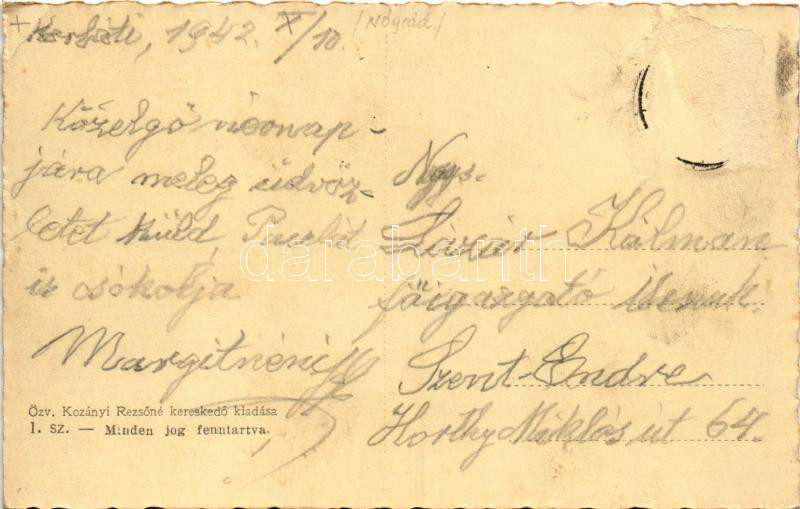 1942. X/10. /Nógrád/
Közelgő
jára meleg üdvöz-
letet küld,
is csókolja
Margitnéni
Özv. Kozányi Rezsőné kereskedő kiadása
1. sz. — Minden jog fenntartva.
Ngys.
Kálmán
főigazgató
Szent-Endre
Horthy Miklós út 64.
darabanth